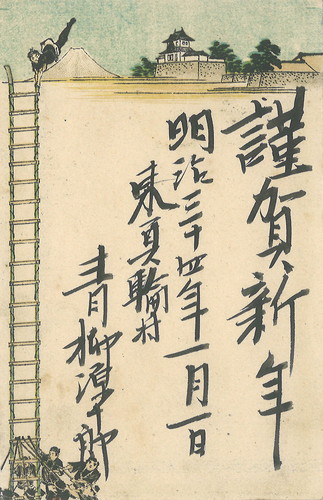 謹賀新年
明治三十四年一月一日
東輪村
青柳源十郎